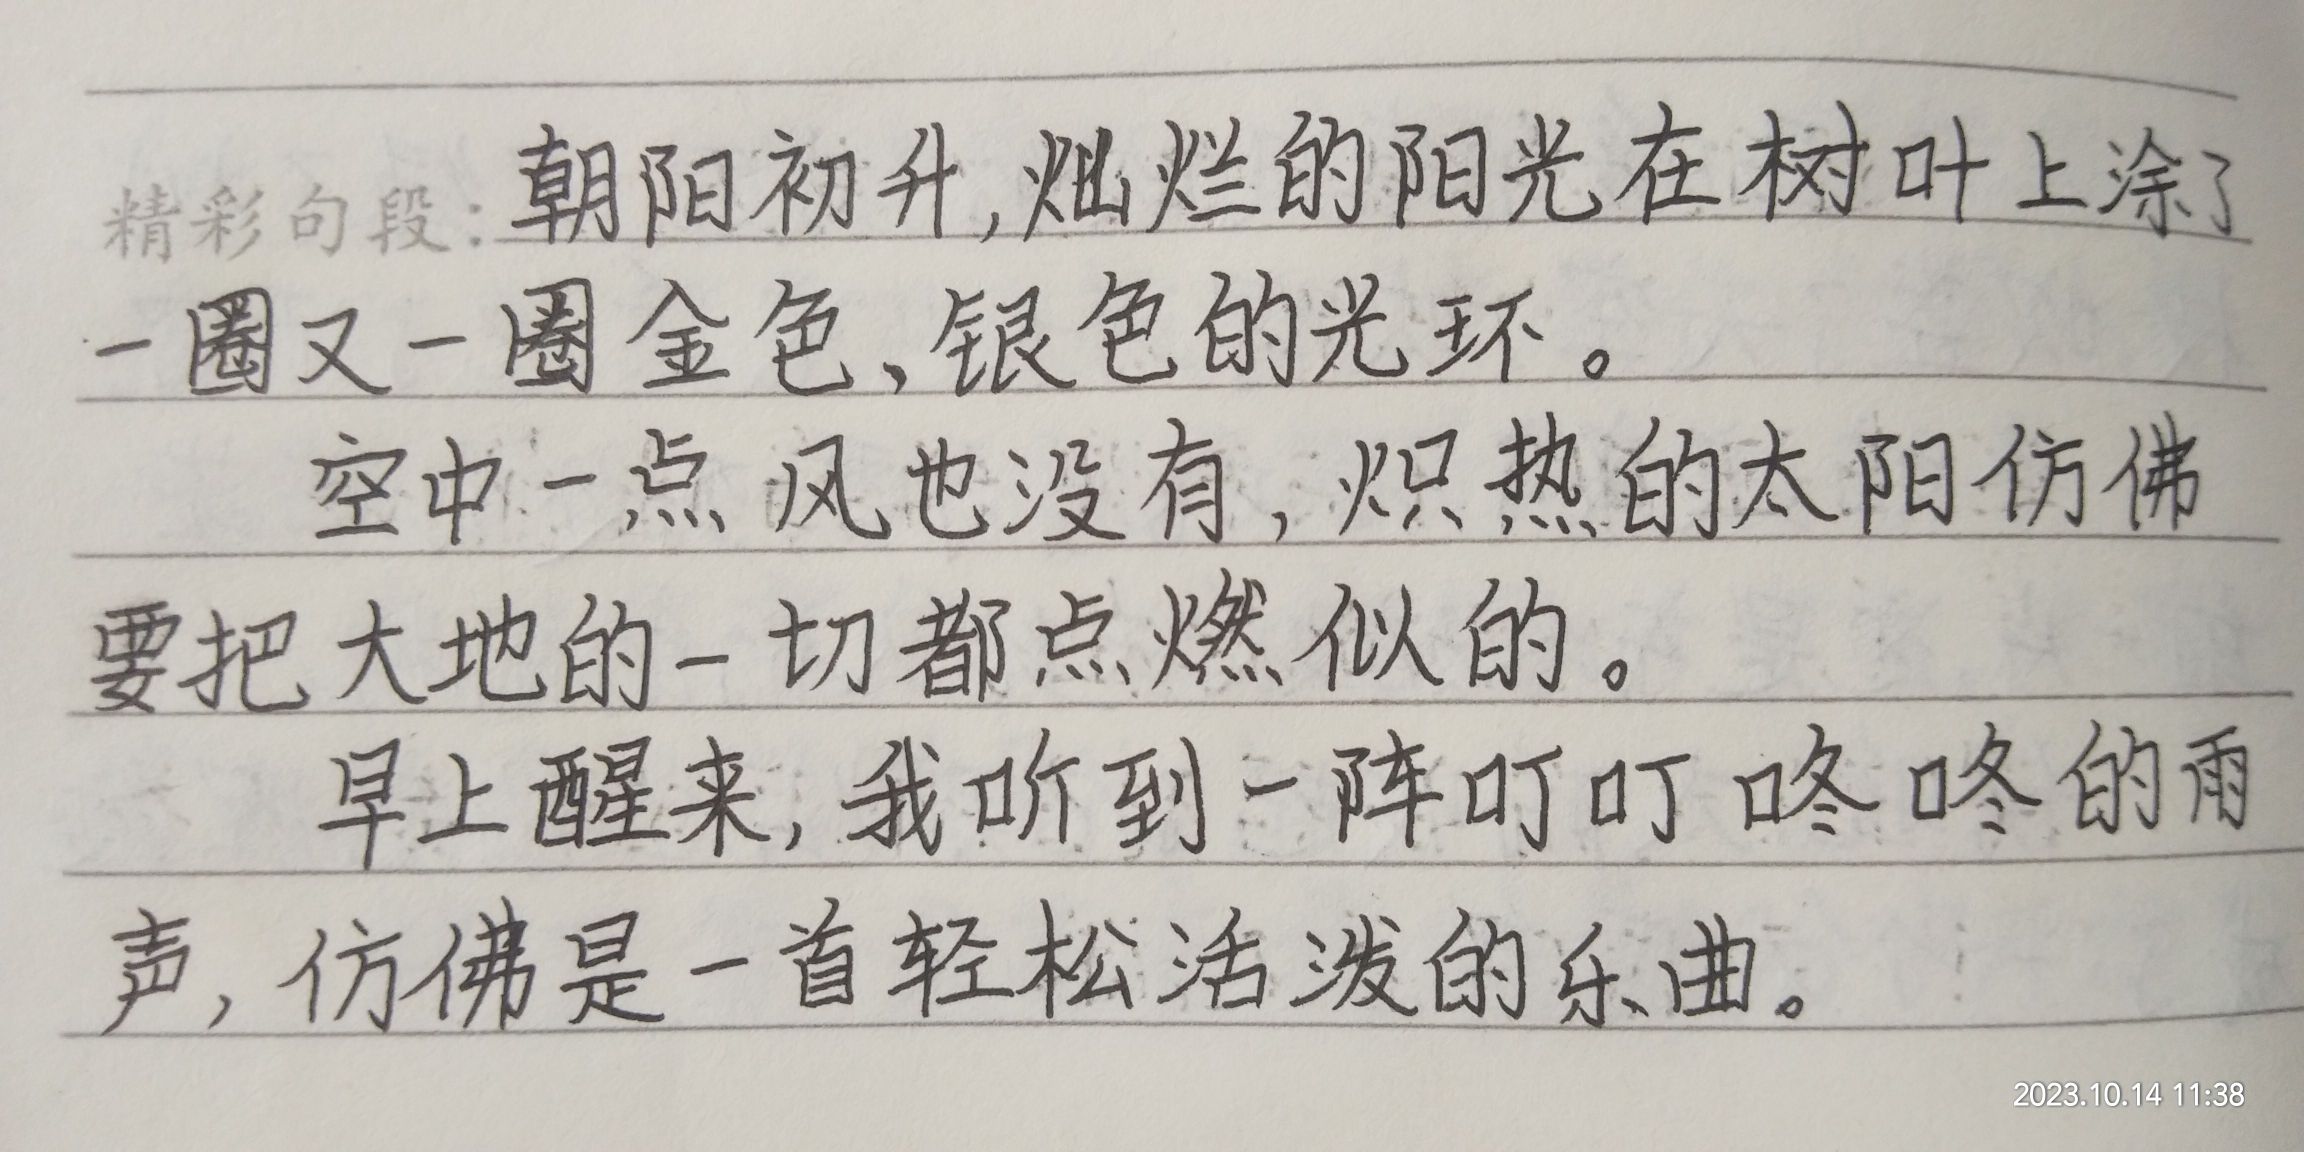 精彩句段：朝阳初升,灿烂的阳光在树叶上涂了
一圈又一圈金色、银色的光环。
空中一点风也没有,炽热的太阳仿佛
要把大地的一切都点燃似的。
早上醒来,我听到一阵叮叮咚咚的雨
声,仿佛是一首轻松活泼的乐曲。
2023.10.14 11:38